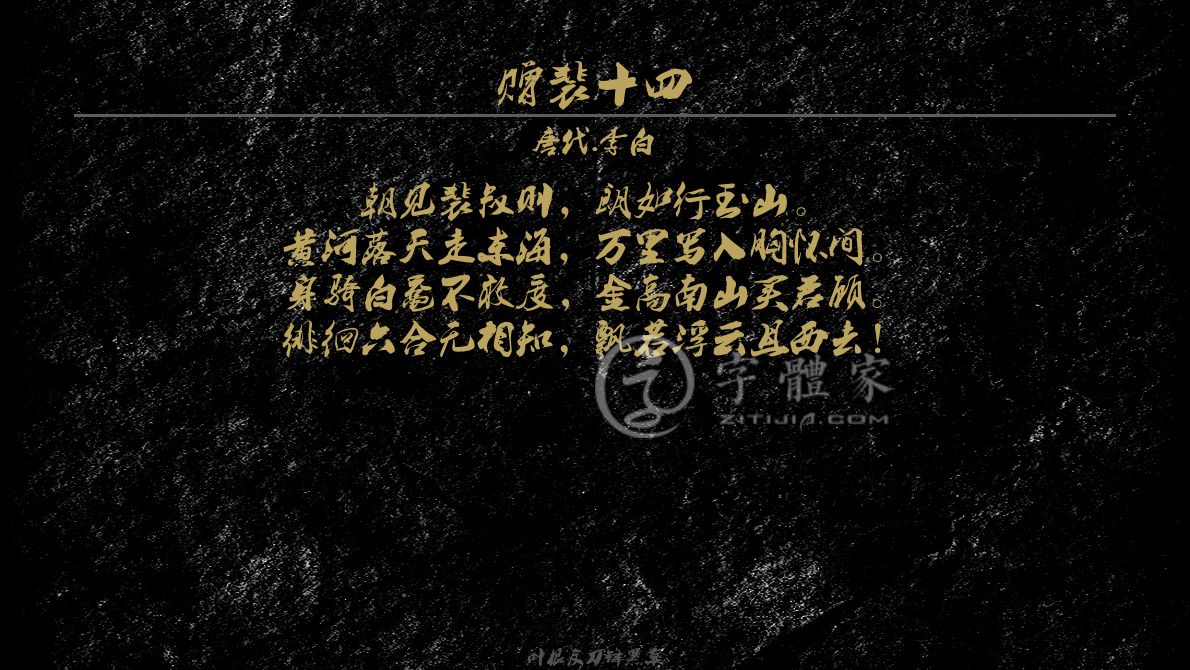 赠裴十四
唐代.李白
朝见裴叔则，朗如行玉山。
黄河落天走东海，万里写入胸怀间。
身骑白鼋不敢度，金高南山买君顾。
徘徊六合无相知，飘若浮云且西去！
字體家
ZITIJIA.COM